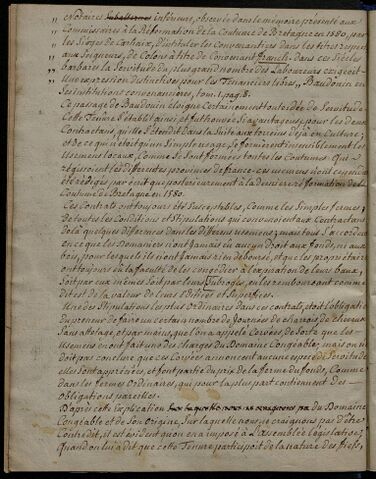 „ Notaires subalternes inférieurs, observée dans le mémoire présenté aux
„ Commissaires à la Réformation de la Coutume de Bretagne en 1580, par
„ les Sièges de Carhaix, d'intituler les Convenantiers dans les titres
„ aux Seigneurs, de Colons à titre de Convenant franch. dans ces Siècles
„ barbares la Servitude du plus grand nombre des Laboureurs exigeoit
„ Une expression distinctive pour les Tenanciers libres „ Baudouin en
„ Ses institutions convenancières, tom. 1, pag. 8.
Ce passage de Baudouin éloigne Certainement toute idée de Servitude
Cette Tenure S'établit ainsi et fut trouvée Si avantageuse, pour les deux
Contractans, qu'elle S'étendit dans la Suite aux terreins déjà en Culture;
et de ce qui n'etoit qu'un Simple usage, Se formèrent insensiblement les
Usemens locaux, Comme Se Sont formées toutes les Coutumes Qui
régissoient les différentes provinces de france. Ces usemens n'ont cependant
été rédigés par écrit que postérieurement à la dernière réformation de la
Coutume de Bretagne en 1580.
Ces Contrats ont toujours été Susceptibles, Comme les Simples fermes,
de toutes les Conditions et Stipulations qui convenoient aux Contractans,
de là quelques différences dans les différens usemens; mais tous S'accordent
en ce que les Domaniers n'ont Jamais eu aucun droit aux fonds, ni aux
bois, pour lesquels ils n'ont Jamais rien déboursé, et que les propriétaires
ont toujours eu la faculté de les congédier à l'expiration de leurs baux,
Soit par eux mêmes Soit par leurs Subrogés, en les remboursant comme
dit est de la valeur de leurs Edifices et Superfices.
Une des Stipulations les plus Ordinaires dans ces contrats, étoit l'obligation
du preneur de faire un certain nombre de Journées de charrois, de chevaux
Sans attelage, et par mains, que l'on a appelé Corvées, de Sorte que les
Usemens en ont fait une des charges du Domaine Congéable; mais on ne
doit pas conclure que ces Corvées annoncent aucune espèce de Servitude
elles Sont appréciées, et font partie du prix de la ferme du fonds, Comme
dans les fermes Ordinaires, qui pour la plus part contiennent des
Obligations pareilles.
D'après cette Explication Sur laquelle nous ne craignons pas du Domaine
Congéable et de Son Origine, Sur laquelle nous ne Craignons pas d'être
Contredit, il est évident qu'on en a imposé à L'assemblée législative,
Quand on lui a dit que cette Tenure participoit de la nature des fiefs,